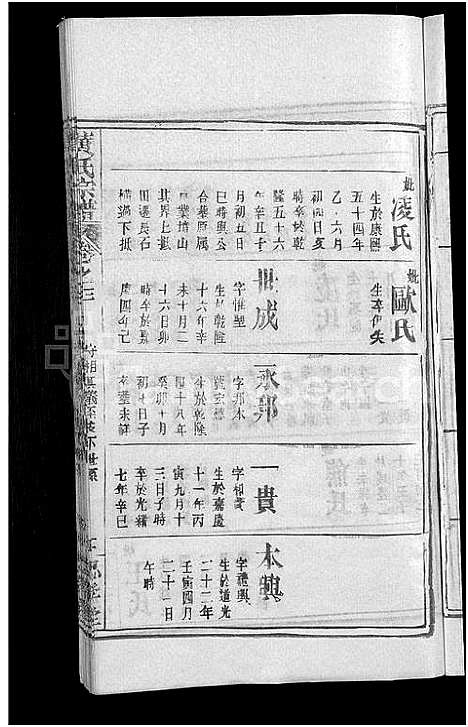 妣凌氏
生於康熙
五十四年
乙 六月
初四日亥
時卒於乾
隆五十六
年辛亥十
月初五日
巳時與公
合葬原属
里業培山
其界上抵
田邊長石
橫過下抵
妣歐氏
生卒俱失
世成
字惟塑
生於乾隆
十六年辛
未十月二
十六日卯
時卒於嘉
慶四年己
永邦
字邦本
生於乾隆
四十八年
癸卯十月
初七日子
卒塟未詳
一貴
字相菁
生於嘉慶
十一年丙
寅九月十
三日子時
卒於光緒
七年辛巳
本興
字禮興
生於道光
二十二年
壬寅四月
二十二日
午時
黄氏宗譜
卷之三